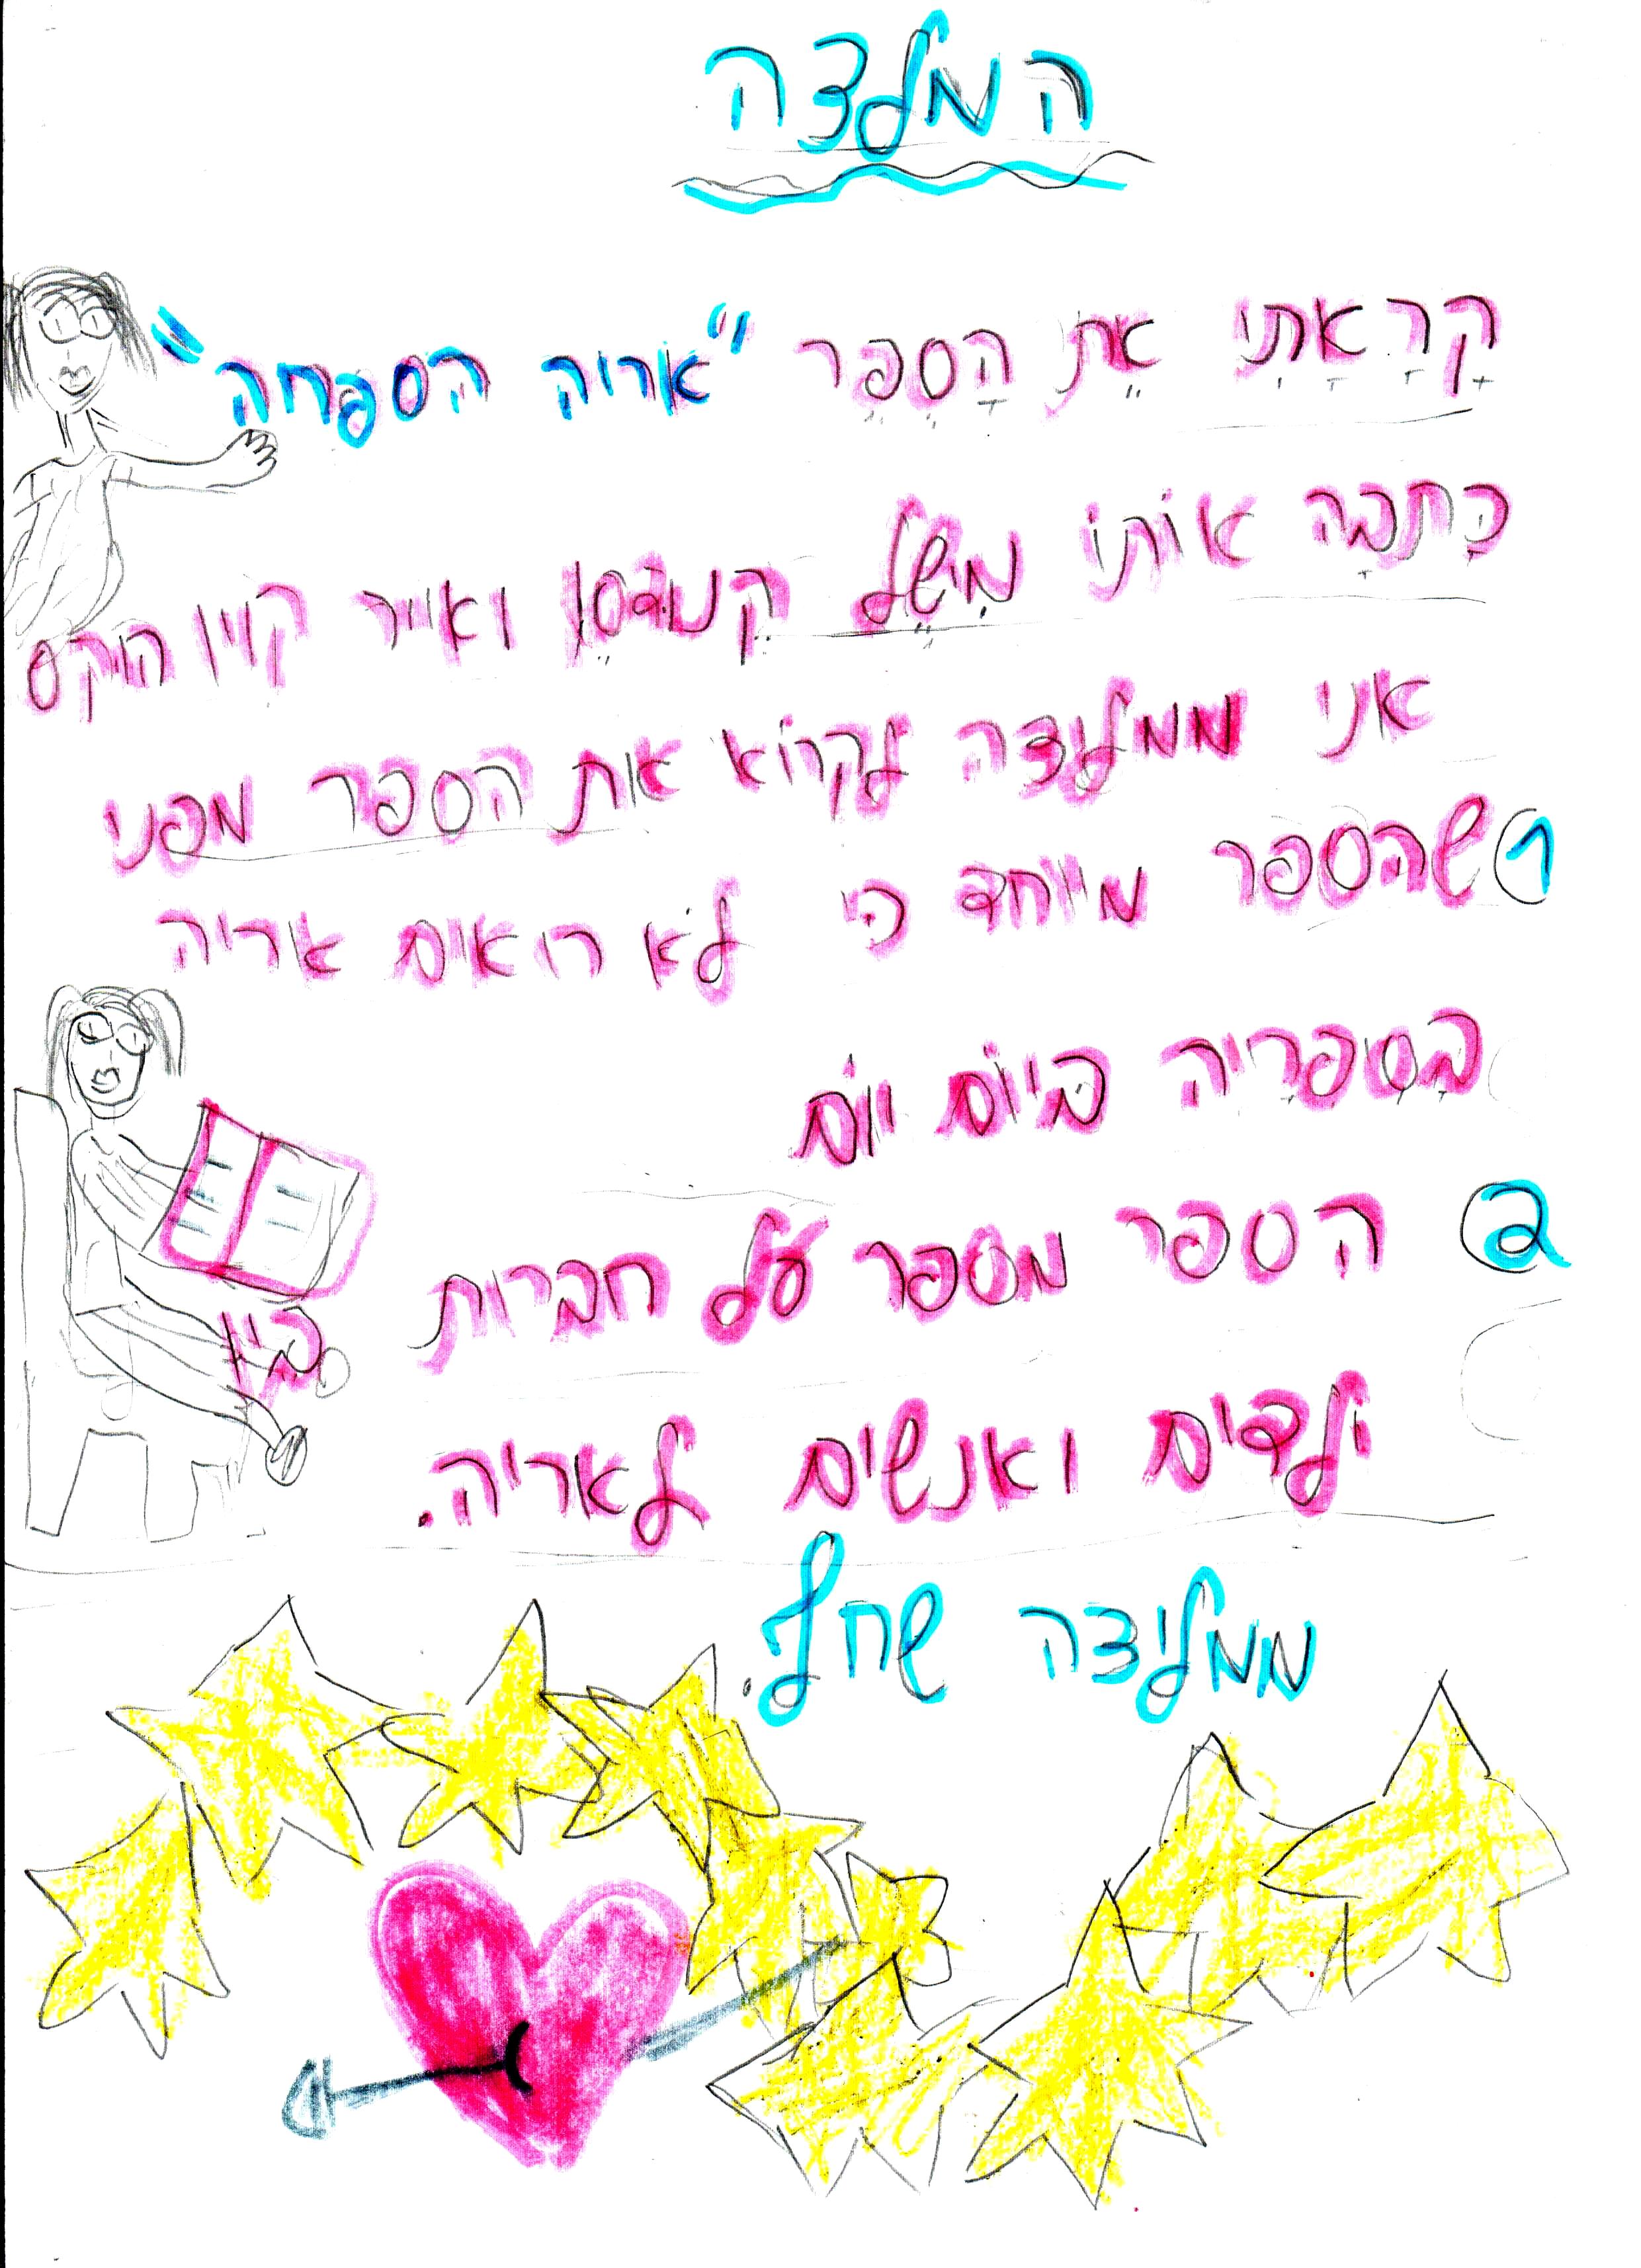 המלצה
קָרָאָתִי אֵת הָסֵפֵר "אריה הספחה"
כָתבָה אוֹתוֹ מִשֵל קֵנוּדסֵן ואייר קווין הוקס
אני ממליצה לקרוֹא את הספר מפני
1 שהספר מיוחד כי לא רואים אריה
בְסִפְרִיָה ביוֹם יוֹם
2 הספר מספר על חברות בין
ילדים ואנשים לאריה.
ממליצה שחל.